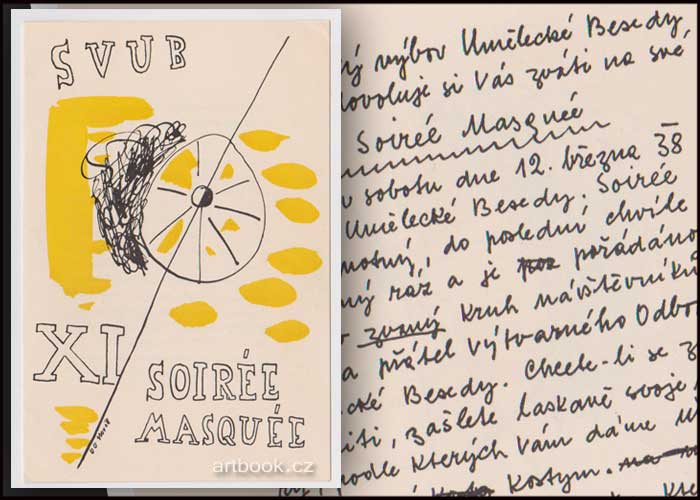 SVUB
XI
SOIRÉE
MASQUÉE
artbook.cz
ný výbor Umělecké Besedy,
dovoluje si Vás zváti na své
Soireé Masqueé
v sobotu dne 12. března 38
Umělecké Besedy. Soirée
, do poslední chvíle
ný ráz a je pořádáno
zvaný kruh návštěvníků
a přátel výtvarného Odbo
cké Besedy. Chcete-li se z
iti, zašlete laskavě svoje
podle kterých Vám dáme
kostym.